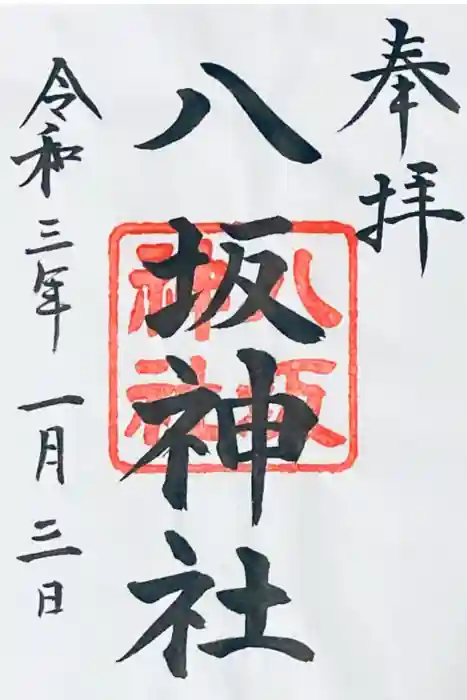 奉拝
八坂神社
八坂
神社
令和三年一月三日